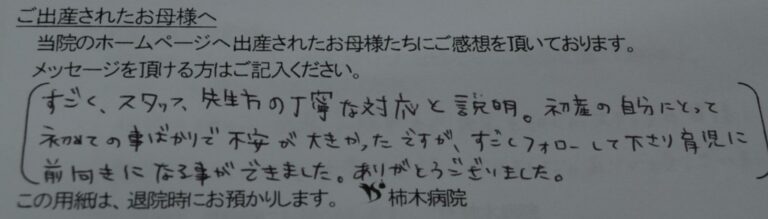 ご出産されたお母様へ
当院のホームページへ出産されたお母様たちにご感想を頂いております。
メッセージを頂ける方はご記入ください。
すごく、スタッフ、先生方の丁寧な対応と説明。初産の自分にとって
初めての事ばかりで不安が大きかったですが、すごくフォローして下さり育児に
前向きになる事ができました。ありがとうございました。
この用紙は、退院時にお預かりします。 柿木病院